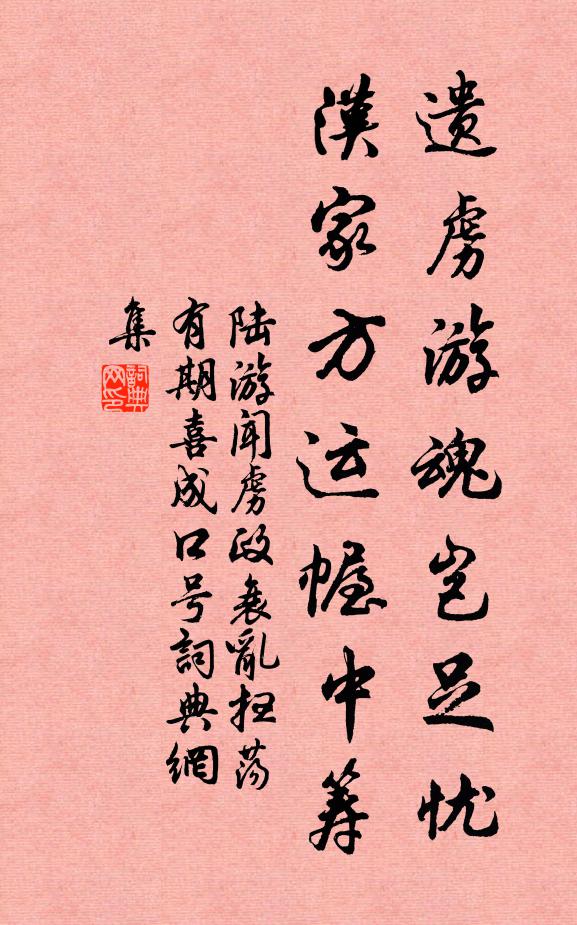 遗虏游魂岂足忧
漢家方运幄中筹
陆游闻虏政衰亂扫荡
有期喜成口号詞典網
集
詞典
网印